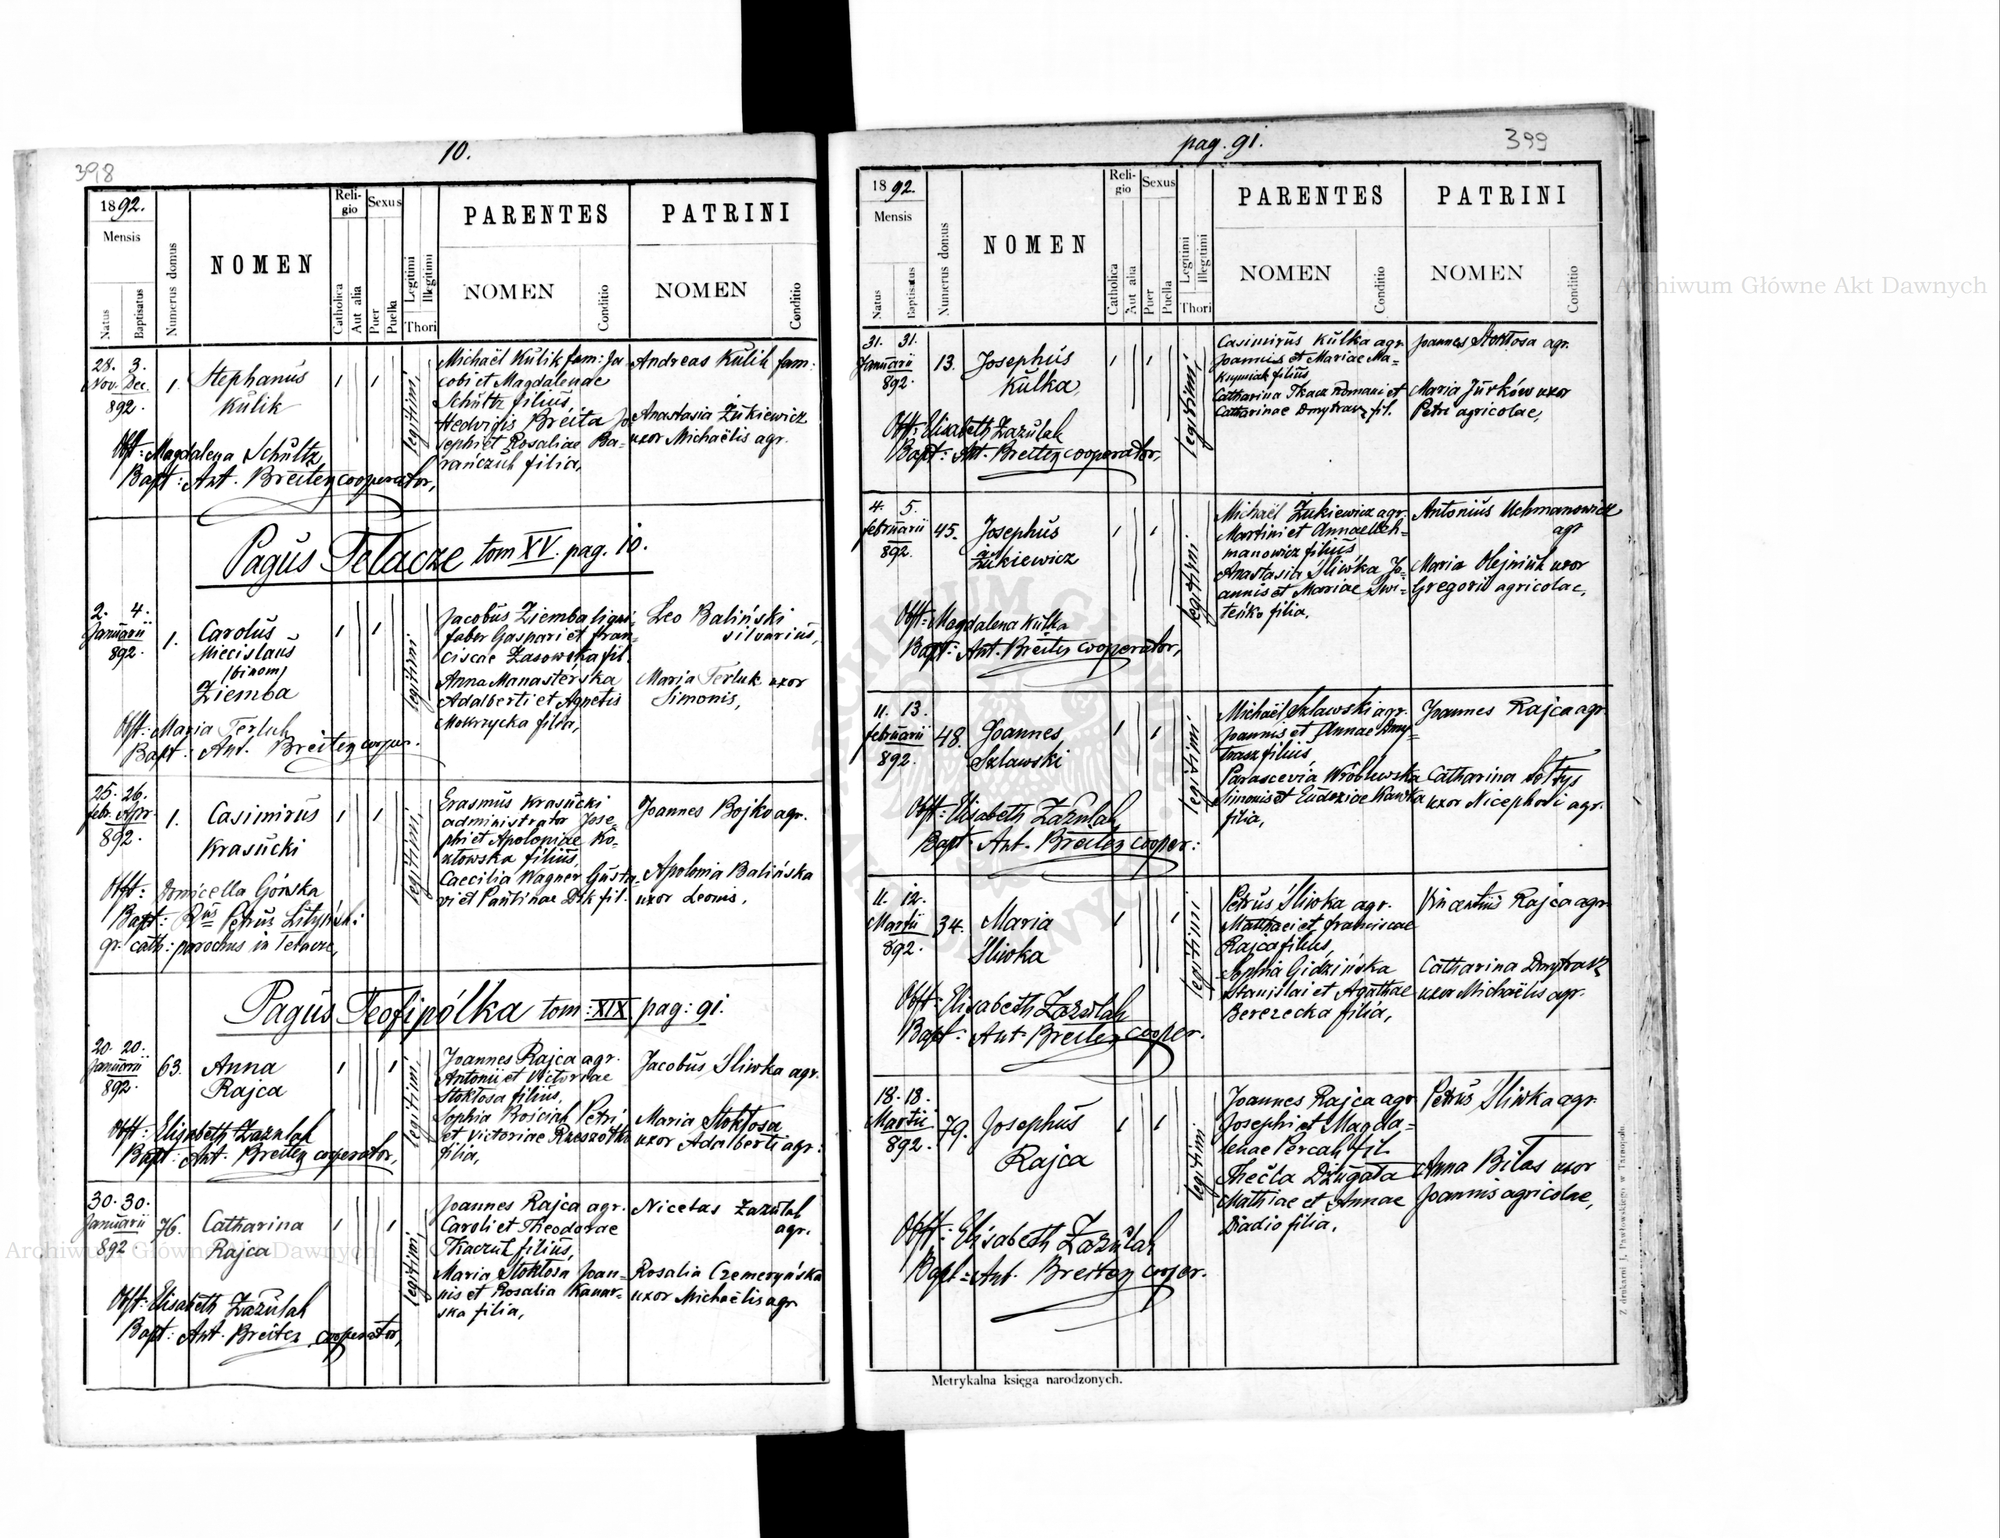 398
10.
1892.
Mensis
Natus
Baptisatus
Numerus domus
NOMEN
Religio
Catholica
Aut alia
Sexus
Puer
Puella
Legitimi
Illegitimi
Thori
PARENTES
NOMEN
Conditio
PATRINI
NOMEN
Conditio
28. 3.
Nov. Dec.
892.
1.
Stephanus
Kulik
legitimi,
Michaël Kulik fam: Ja
cobi et Magdalenae
Schultz filius,
Hedvigis Breita Jo
sephi et Rosaliae Ba-
rańczuk filia,
Andreas Kulik fam:
Anastasia Żukiewicz
uxor Michaëlis agr.
Obst: Magdalena Schultz,
Bapt: Ant. Breiter cooperator,
Pagus Telacze tom XV. pag. 10.
2. 4.
Januarii
892.
1.
Carolus
Miecislaus
(binom)
Ziemba
legitimi
Jacobus Ziemba ligni
faber Gaspari et Fran-
ciscae Zasowska fil.
Anna Manasterska
Adalberti et Agnetis
Mokrzycka filia,
Leo Baliński
silvarius,
Maria Terluk uxor
Simonis,
Obst: Maria Terluk
Bapt: Ant. Breiter cooper.
25. 26.
Febr. Apr.
892.
1.
Casimirus
Krasucki
legitimi,
Erasmus Krasucki
administrator Jose-
phi et Apoloniae Ko-
złowska filius,
Caecilia Wagner Gusta-
vi et Paulinae Dik fil.
Joannes Bojko agr.
Apolonia Balińska
uxor Leonis,
Obst: Domicella Górska
Bapt: Petrus Lityński
gr. cath: parochus in Telacze,
Pagus Teofipólka tom: XIX pag: 91.
20. 20.
Januarii
892.
63.
Anna
Rajca
legitimi,
Joannes Rajca agr.
Antonii et Victoriae
Stoktosa filius,
Sophia Bojciah Petri
et Victoriae
filia,
Jacobus Sliwka agr.
Maria Stoktosa
uxor Adalberti agr:
Obst: Elisabeth Zazulak
Bapt: Ant. Breiter cooperator,
30. 30.
Januarii
892
76.
Catharina
Rajca
legitimi,
Joannes Rajca agr.
Caroli et Theodorae
Tkaczuk filius,
Maria Stoktosa Joan-
nis et Rosalia Kanar-
ska filia,
Nicetas Zazulak
agr.
Rosalia Czemeryńska
uxor Michaëlis agr
Obst: Elisabeth Zazulak
Bapt: Ant. Breiter cooperator,
pag. 91.
399
1892.
Mensis
Natus
Baptisatus
Numerus domus
NOMEN
Religio
Catholica
Aut alia
Sexus
Puer
Puella
Legitimi
Illegitimi
Thori
PARENTES
NOMEN
Conditio
PATRINI
NOMEN
Conditio
31. 31.
Januarii
892.
13.
Josephus
Kulka,
legitimi,
Casimirus Kulka agr.
Joannis et Mariae Ma-
ksymiak filius
Catharina Tkacz Romani et
Catharinae Dmytrasz fil.
Joannes Stoktosa agr.
Maria Jurków uxor
Petri agricolae,
Obst: Elisabeth Zazulak
Bapt: Ant. Breiter cooperator,
4. 5.
februarii
892.
45.
Josephus
Żukiewicz
legitimi
Michaël Żukiewicz agr.
Martini et Annae Uch-
manowicz filius
Anastasia Sliwka Jo-
annis et Mariae Swi-
teńko filia,
Antonius Uchmanowicz
agr
Maria Olejnik uxor
Gregorii agricolae,
Obst: Magdalena Kulka
Bapt: Ant. Breiter cooperator,
11. 13.
februarii
892.
48.
Joannes
Szlawski
legitimi
Michaël Szlawski agr.
Joannis et Annae Dmy-
trasz filius,
Parascevia Wróblewska
Simonis et Eudoxiae Wawka
filia,
Joannes Rajca agr.
Catharina Sołtys
uxor Nicephori agr.
Obst: Elisabeth Zazulak,
Bapt: Ant. Breiter cooper:
11. 12.
Martii
892.
34.
Maria
Sliwka
legitimi
Petrus Sliwka agr.
Matthaei et franciscae
Rajca filius,
Sophia Gidzińska
Stanislai et Agathae
Berezecka filia,
Vincentius Rajca agr
Catharina Dmytrasz
uxor Michaëlis agr.
Obst: Elisabeth Zazulak
Bapt: Ant Breiter cooper.
18. 18.
Martii
892.
79.
Josephus
Rajca
legitimi
Joannes Rajca agr
Josephi et Magda-
lenae Percak fil
Thecla Dzugała
Mathiae et Annae
Diadio filia,
Petrus Sliwka agr
Anna Bilas uxor
Joannis agricolae,
Obst: Elisabeth Zazulak
Bapt: Ant. Breiter cooper.
Metrykalna księga narodzonych.
Z drukarni J. Pawłowskiego w Tarnopolu.
Archiwum Główne Akt Dawnych
Archiwum Główne Akt Dawnych